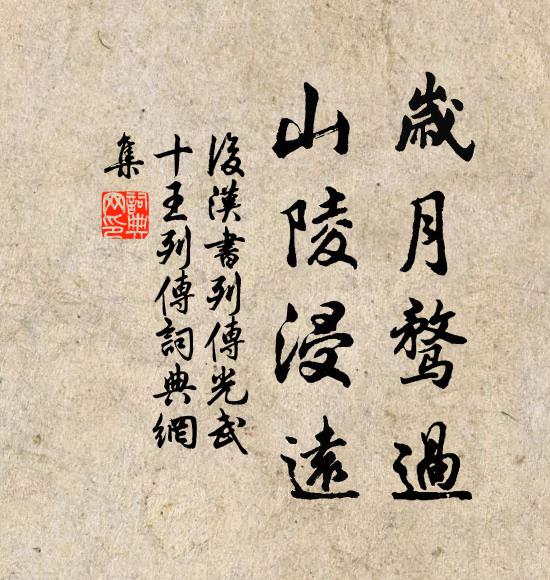 歲月驁過
山陵浸遠
後漢書列傳光武
十王列傳詞典網
集
詞典
网印